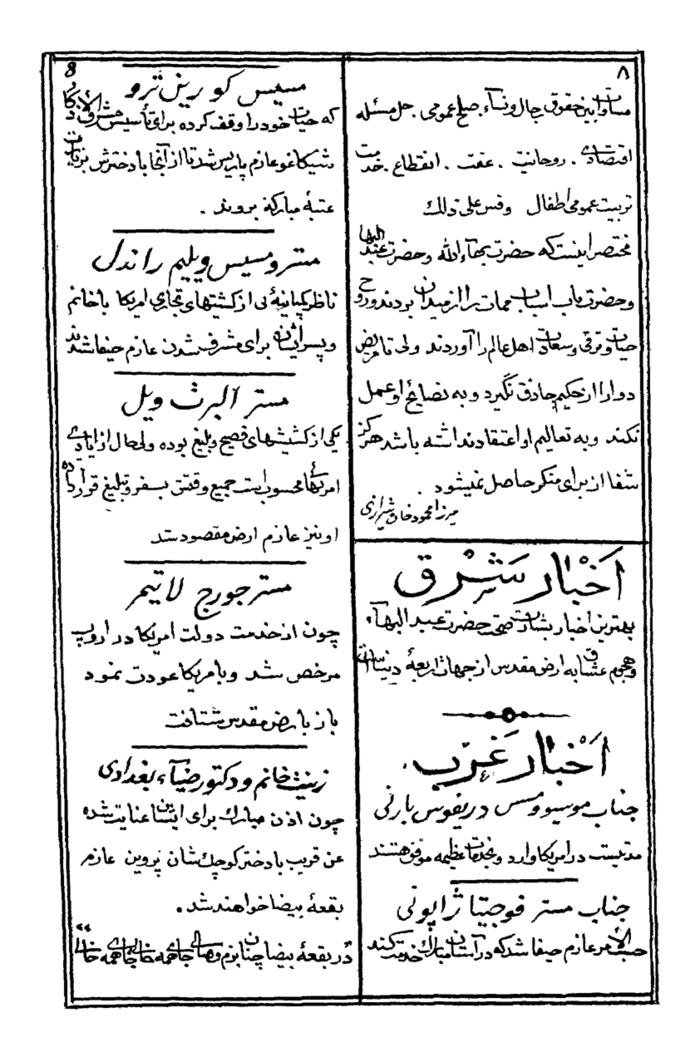 ۸
مساوات بین حقوق رجال و نسآء . صلح عمومی . حل مسئله
اقتصادی . روحانیت . عفت . انقطاع . خدمت
تربیت عمومی اطفال وقس علی ذلک
مختصر اینست که حضرت بهاء الله و حضرت عبد البهآ
و حضرت باب اسباب ممات را از میدان بردند و روح
حیات و ترقی و سعادت اهل عالم را آوردند ولی تا مریض
دوا را از حکیم حاذق نگیرد و به نصایح او عمل
نکند و به تعالیم او اعتقاد نداشته باشد هرگز
شفا از برای منکر حاصل نمیشود
میرزا محمود خان شیرازی
اَخْبَار شَرْق
بهترین اخبار بشارت صحت حضرت عبد البهآء .
و هجوم عشاق به ارض مقدس از جهات اربعهٔ دنیاست
اَخْبَار غَرْب
جناب موسیو و مسس دریفوس بارنی
مدتیست در امریکا وارد و بخدمات عظیمه موفق هستند
جناب مستر فوجیتا ژاپونی
حسب الامر عازم حیفا شد که در آستان مبارک خدمت کند
8
مسیس کورین ترو
که حیات خود را وقف کرده برای تأسیس مشرق الاذکار
شیکاغو عازم پاریس شد تا از آنجا با دخترش بزیارت
عتبهٔ مبارکه بروند .
مستر و مسیس ویلیم راندل
ناظر کمپانیهٔ یی از کشتیهای تجاری امریکا با خانم
و پسر ایشان برای مشرف شدن عازم حیفا شدند
مستر البرت ویل
یکی از کشیشهای فصیح و بلیغ بوده و لحال از ایادی
امریکا محسوب است جمیع وقتش بسفر و تبلیغ قرار داده
او نیز عازم ارض مقصود شد
مستر جورج لاتیمر
چون از خدمت دولت امریکا در اروپ
مرخص شد و بامریکا عودت نمود
باز بارض مقدس شتافت
زینت خانم و دکتور ضیآء بغدادی
چون اذن مبارک برای ایشان عنایت شده
عن قریب با دختر کوچک شان پروین عازم
بقعهٔ بیضا خواهند شد .
در بقعهٔ بیضا چنان بزم وصالی جای همه خالی جای همه خالی